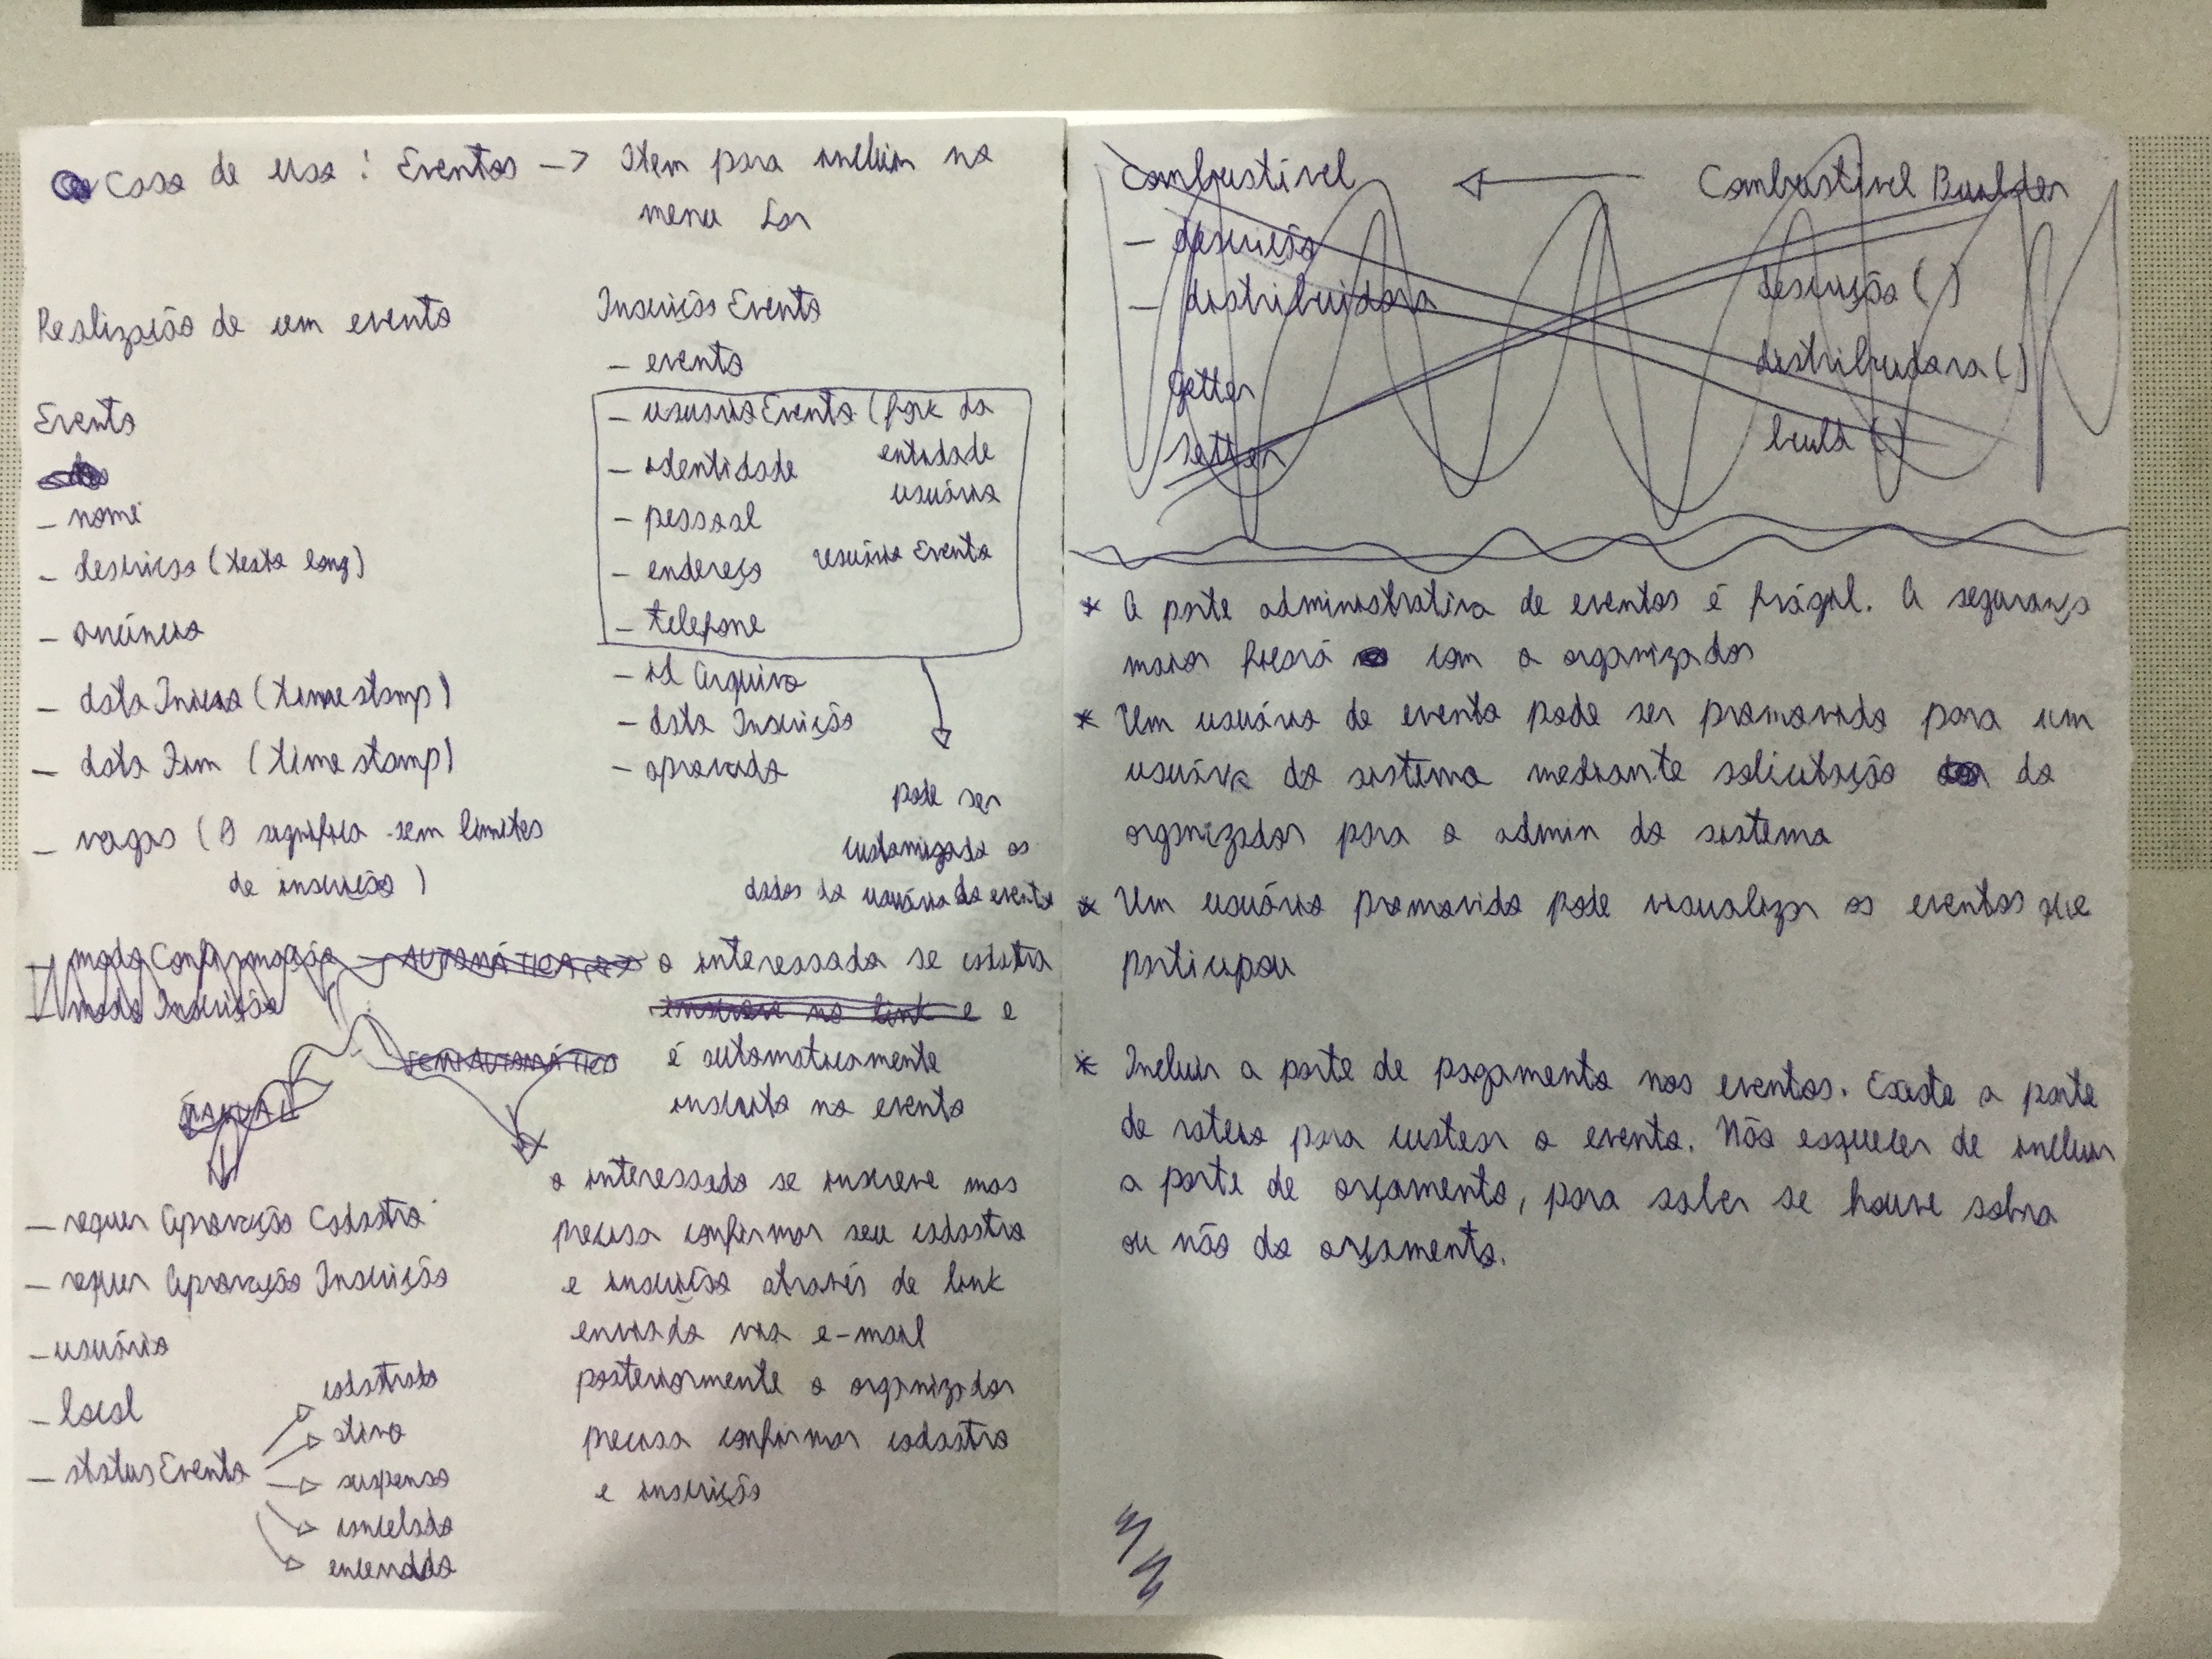 Caso de uso: Eventos -> Item para incluir no
menu Lar
Realização de um evento
Evento
- nome
- descricao (texto long)
- anúncio
- data Inicio (timestamp)
- data Fim (timestamp)
- vagas (0 significa sem limites
de inscrição)
- modo Confirmação - AUTOMÁTICA
- modo Inscrição
SEMIAUTOMÁTICO
MANUAL
- requer Aprovação Cadastro
- requer Aprovação Inscrição
- usuário
- local
- status Evento
cadastrado
ativo
suspenso
cancelado
encerrado
Inscrição Evento
- evento
- usuario Evento (fork da
entidade
usuário
- identidade
- pessoal
- endereço
usuário Evento
- telefone
- id Arquivo
- data Inscrição
- aprovado
pode ser
customizado os
dados do usuário do evento
o interessado se cadastra
inscreve no link e e
é automaticamente
inscrito no evento
o interessado se inscreve mas
precisa confirmar seu cadastro
e inscrição através de link
enviado via e-mail
posteriormente o organizador
precisa confirmar cadastro
e inscrição
Combustível <- Combustível Builder
- descrição
- distribuidora
getter
setter
descrição ( )
distribuidora ( )
build ( )
* A parte administrativa de eventos é frágil. A segurança
maior ficará com o organizador
* Um usuário de evento pode ser promovido para um
usuário do sistema mediante solicitação do
organizador para o admin do sistema
* Um usuário promovido pode visualizar os eventos que
participou
* Incluir a parte de pagamento nos eventos. Existe a parte
de rateio para custear o evento. Não esquecer de incluir
a parte de orçamento, para saber se houve sobra
ou não do orçamento.